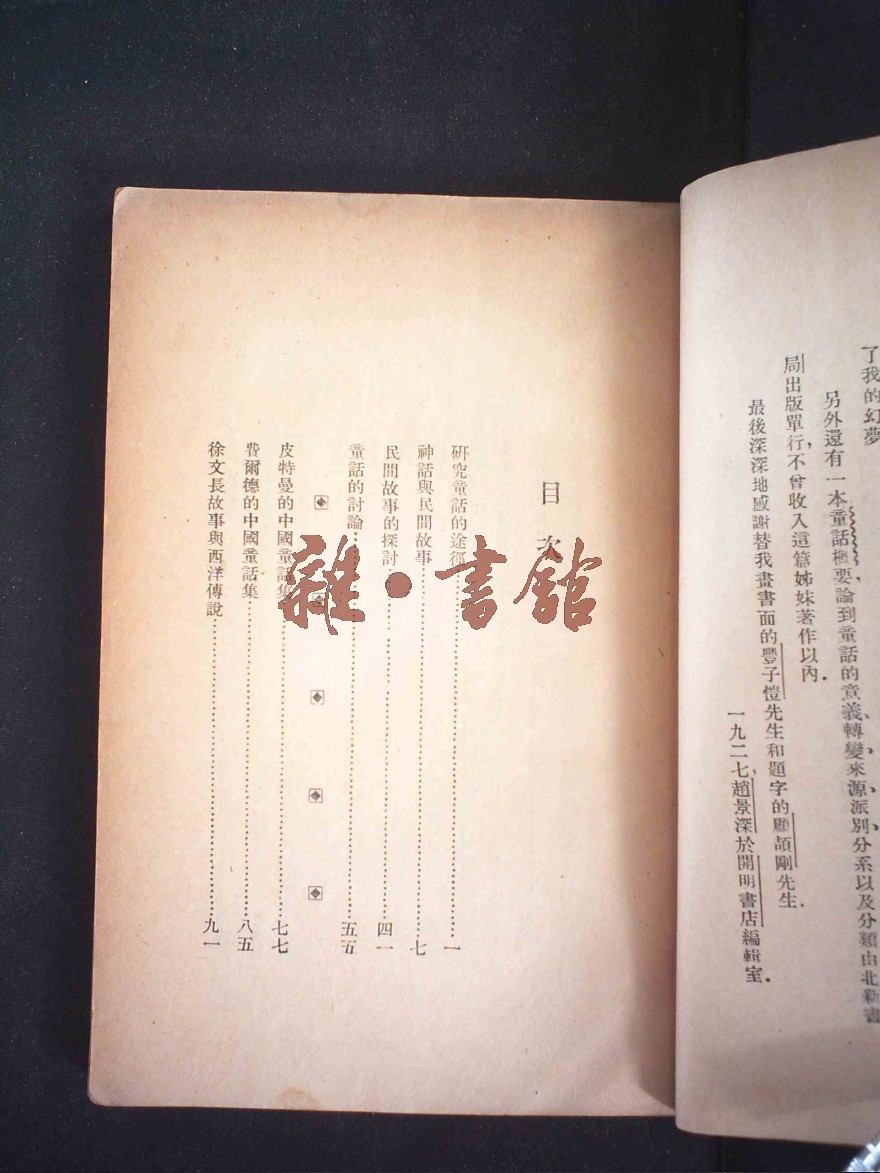 了我的幻夢
另外還有一本童話概要，論到童話的意義、轉變、來源、派別、分系以及分類，由北新書
局出版單行，不曾收入這篇姊妹著作以內．
最後深深地感謝替我畫書面的豐子愷先生和題字的顧頡剛先生．
一九二七，趙景深於開明書店編輯室．
目次
研究童話的途徑…………一
神話與民間故事…………七
民間故事的探討…………四一
童話的討論…………五五
皮特曼的中國童話集…………七七
費爾德的中國童話集…………八五
徐文長故事與西洋傳說…………九一
雜・書館